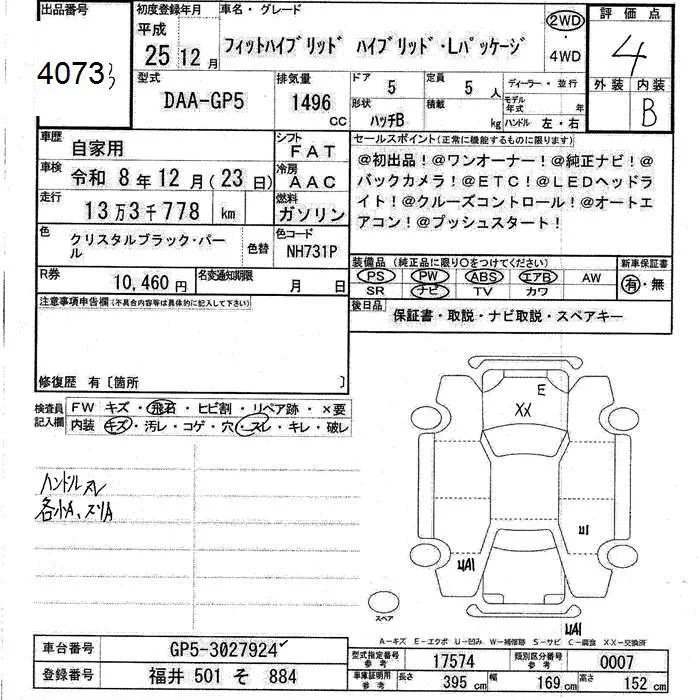 出品番号
4073
初度登録年月
平成
25 12 月
車名・グレード
フィットハイブリッド ハイブリッド・Lパッケージ
2WD
・
4WD
評価点
4
外装 内装
B
型式
DAA-GP5
排気量
1496
CC
ドア
5
定員
5 人
形状
ハッチB
積載
kg
ディーラー・並行
モデル年式 年
ハンドル 左・右
車歴
自家用
シフト
FAT
車検
令和 8年 12月(23日)
冷房
AAC
走行
13万3千778 km
燃料
ガソリン
色
クリスタルブラック・パール
色替
色コード
NH731P
R券
10,460円
名変通知期限
月 日
セールスポイント(正常に機能するものに限ります)
@初出品!@ワンオーナー!@純正ナビ!@
バックカメラ!@ETC!@LEDヘッドラ
イト!@クルーズコントロール!@オートエ
アコン!@プッシュスタート!
装備品(純正品に限り○をつけてください)
PS PW ABS エアB AW
SR ナビ TV カワ
新車保証書
有・無
後日品
保証書・取説・ナビ取説・スペアキー
注意事項申告欄(不具合内容等は具体的に記入して下さい)
修復歴 有〔箇所 〕
検査員記入欄
FW キズ・飛石・ヒビ割・リペア跡・×要
内装 キズ・汚レ・コゲ・穴・スレ・キレ・破レ
ハンドルスレ
各小A、スリA
E
XX
U1
UA1
UA1
スペア
A-キズ E-エクボ U-凹み W-補修跡 S-サビ C-腐食 XX-交換済
車台番号
GP5-3027924
登録番号
福井 501 そ 884
型式指定番号
参考
17574
類別区分番号
参考
0007
車庫証明用
参考
長さ 395 cm
幅 169 cm
高さ 152 cm